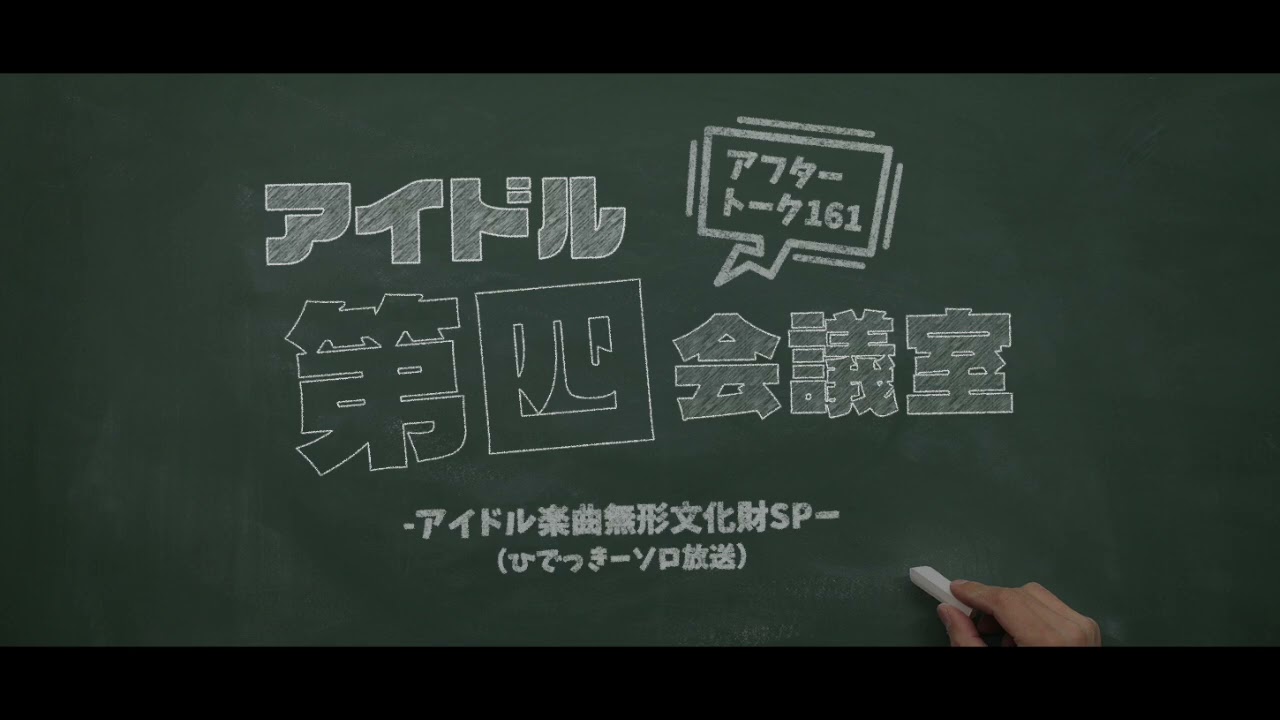 アイドル
アフター
トーク161
第四会議室
-アイドル楽曲無形文化財SPー
(ひでっきーソロ放送)